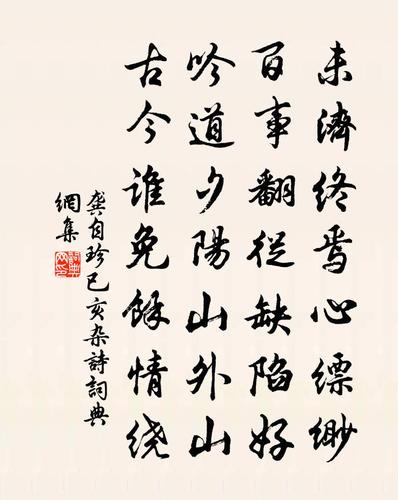 未濟終焉心縹緲
百事翻從缺陷好
吟道夕陽山外山
古今誰免餘情绕
龔自珍己亥杂詩詞典
網集